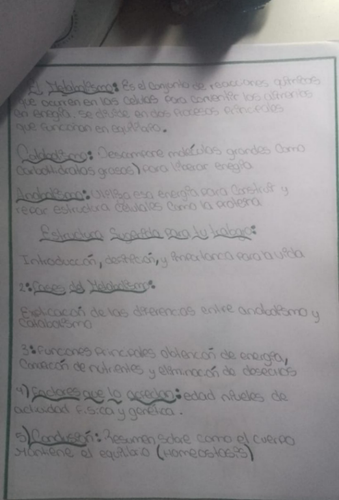 El Metabolismo: Es el conjunto de reacciones químicas
que ocurren en las celulas para convertir los nutrientes
en energía. se divide en dos procesos principales
que funcionan en equilibrio.
Catabolismo: Descompone moléculas grandes (como
carbohidratos grasos) para liberar energía
Anabolismo: Utiliza esa energía para construir y
reparar estructura celulares como la proteína
Estructura Sugerida para tu trabajo:
Introducción, definición, y importancia para la vida
2: Fases del Metabolismo:
Explicación de las diferencias entre anabolismo y
catabolismo
3: Funciones principales obtención de energía,
de nutrientes y eliminación de desechos
4) Factores que lo afectan: edad niveles de
actividad física y genética.
5) Conclusión: Resumen sobre como el cuerpo
mantiene el equilibrio (Homeostasis)